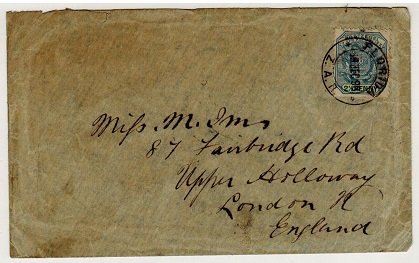 FLORIDA
Z.A.R.
Miss. M. Ims
87 Fairbridge Rd
Upper Holloway
London N
England